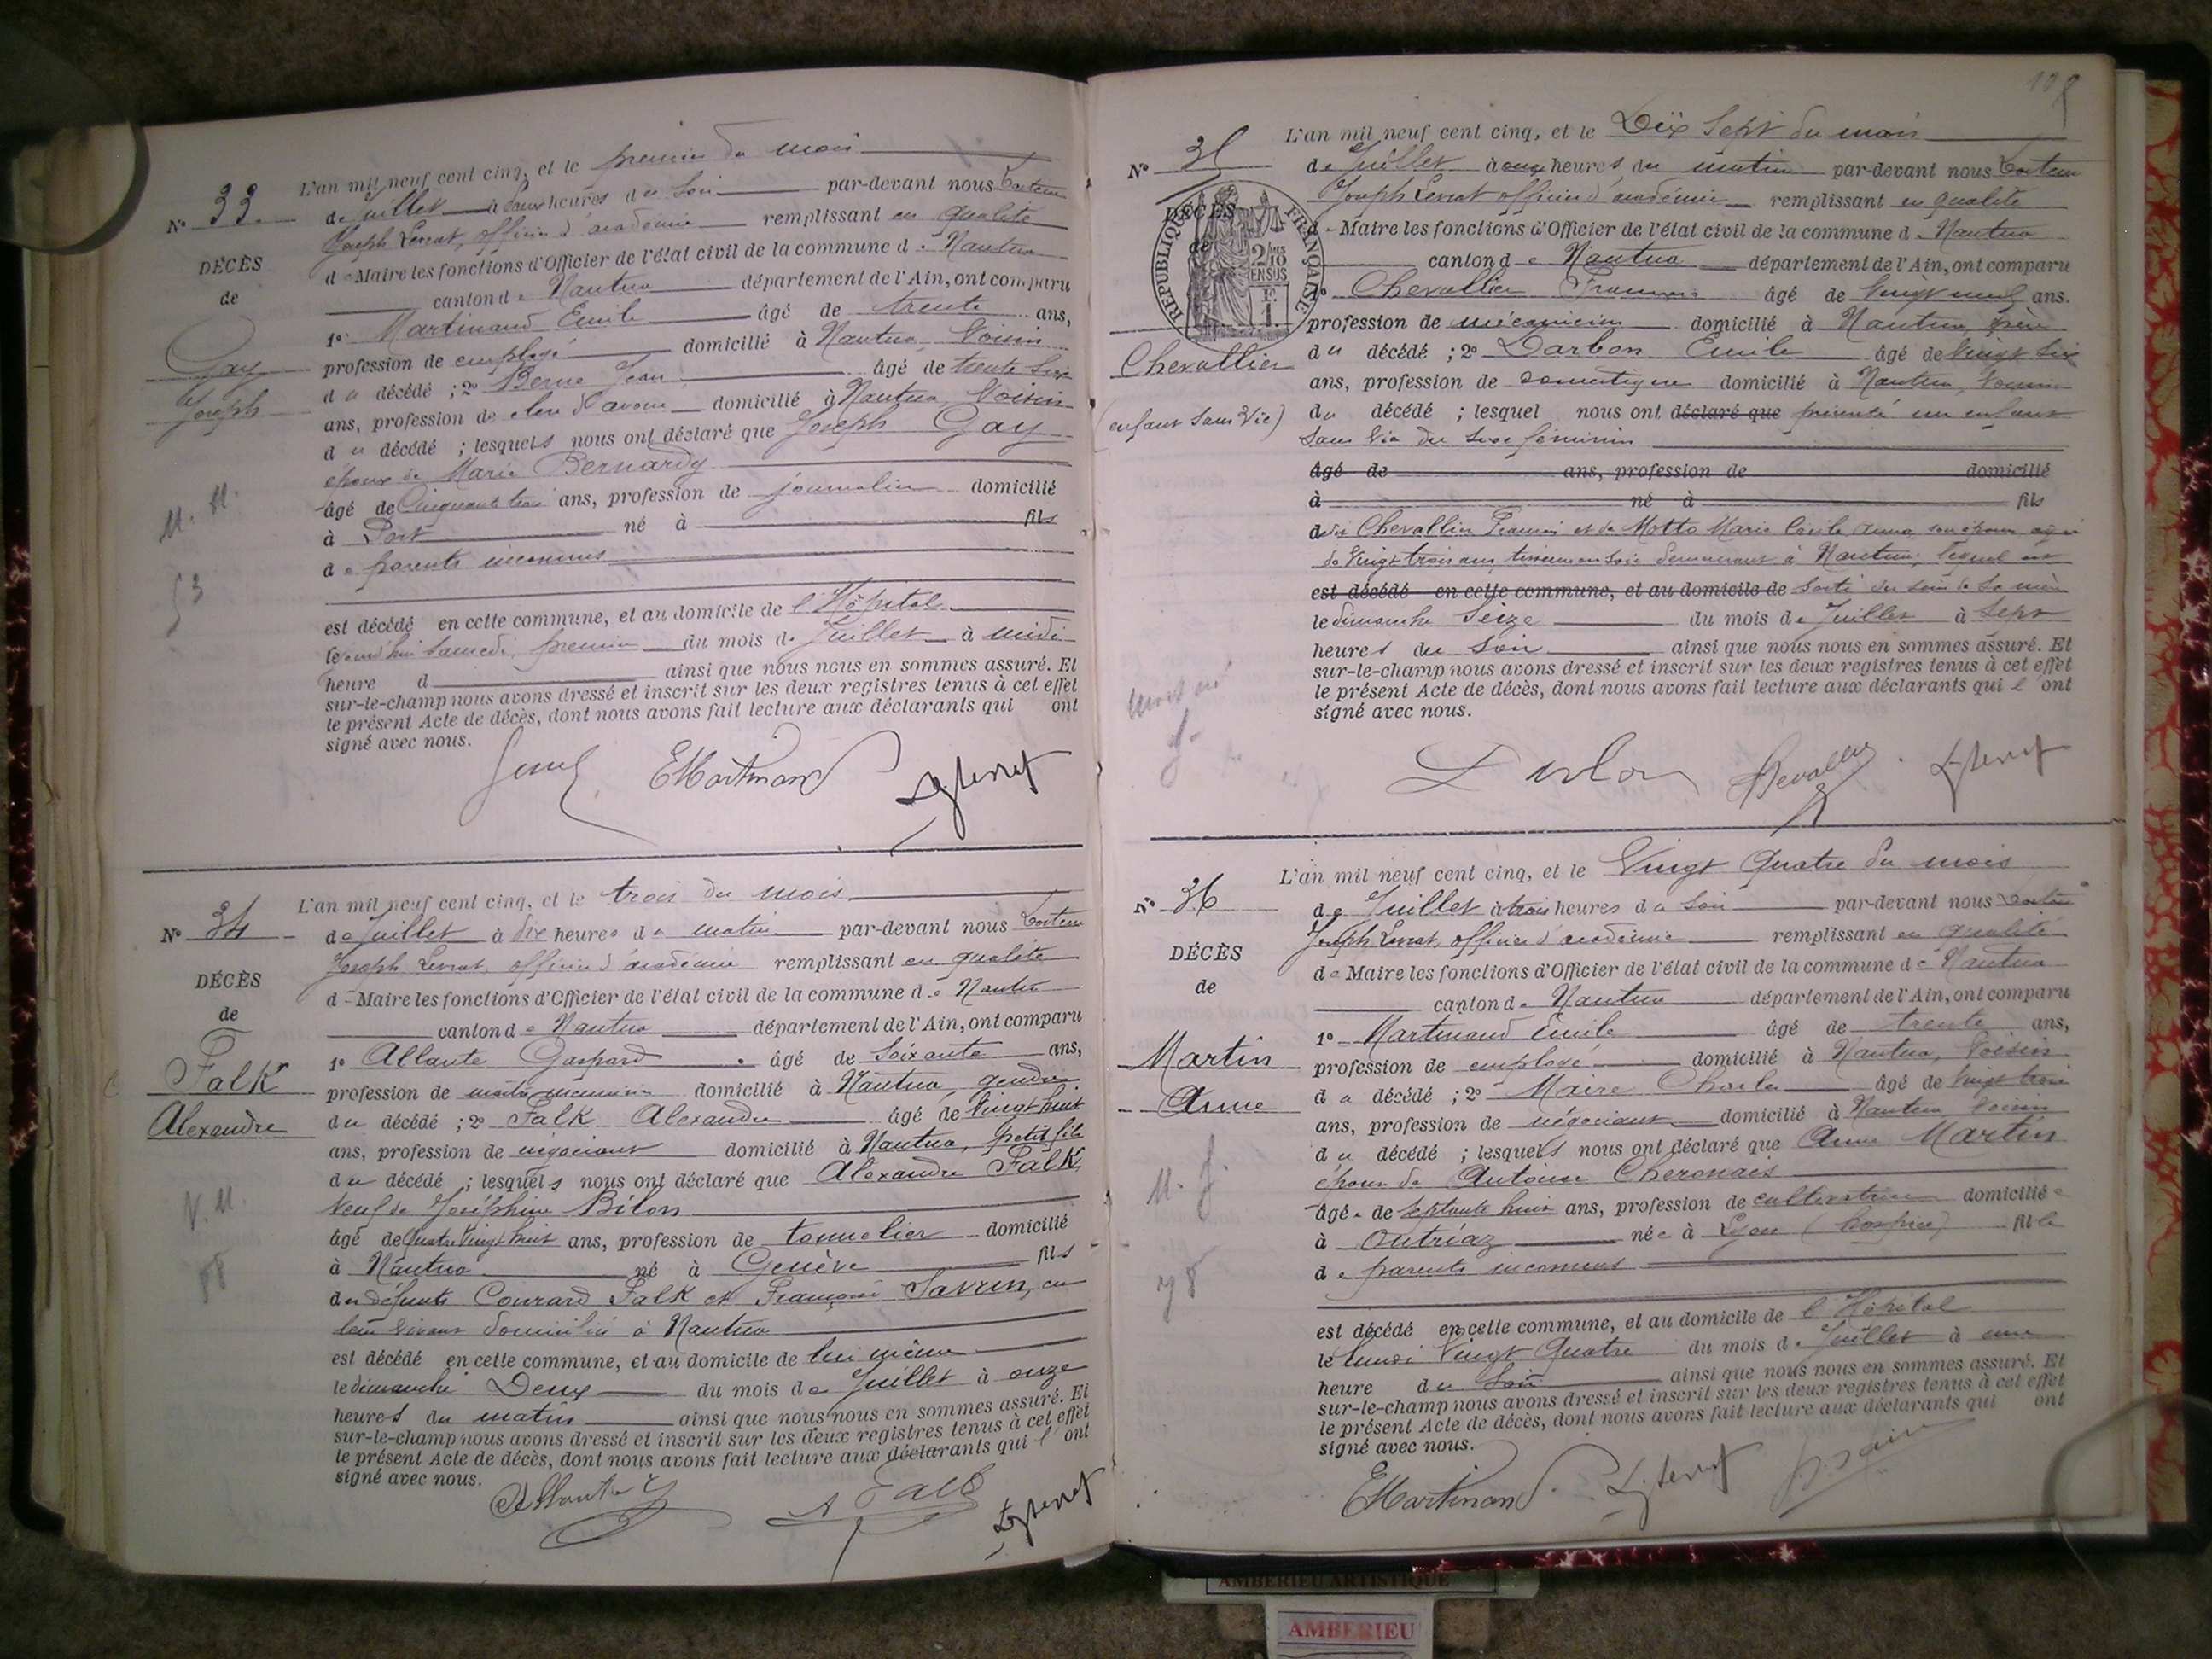 N° 33.
DÉCÈS
de
Gay
Joseph
M. M.
53
L'an mil neuf cent cinq, et le premier du mois
de Juillet à deux heures du soir par-devant nous
Joseph Levrat, officier d'académie remplissant en qualité
de Maire les fonctions d'Officier de l'état civil de la commune de Nantua
canton de Nantua département de l'Ain, ont comparu
1° Martinand Emile âgé de trente ans,
profession de employé domicilié à Nantua, Voisin
du décédé ; 2° Berne Jean âgé de trente six
ans, profession de clerc d'avoué domicilié à Nantua, Voisin
du décédé ; lesquels nous ont déclaré que Joseph Gay
époux de Marie Bernardy
âgé de Cinquante trois ans, profession de journalier domicilié
à Port né à fils
de parents inconnus
est décédé en cette commune, et au domicile de l'Hôpital
le aujourd'hui Samedi, premier du mois de Juillet à midi
heure d ainsi que nous nous en sommes assuré. Et
sur-le-champ nous avons dressé et inscrit sur les deux registres tenus à cet effet
le présent Acte de décès, dont nous avons fait lecture aux déclarants qui ont
signé avec nous.
EMartinand
N° 34
DÉCÈS
de
Falk
Alexandre
V. M.
88
L'an mil neuf cent cinq, et le trois du mois
de Juillet à dix heures du matin par-devant nous
Joseph Levrat, officier d'académie remplissant en qualité
de Maire les fonctions d'Officier de l'état civil de la commune de Nantua
canton de Nantua département de l'Ain, ont comparu
1° Allante Gaspard âgé de Soixante ans,
profession de maître menuisier domicilié à Nantua, gendre
du décédé ; 2° Falk Alexandre âgé de Vingt huit
ans, profession de négociant domicilié à Nantua, petit fils
du décédé ; lesquels nous ont déclaré que Alexandre Falk,
Veuf de Joséphine Bilon
âgé de Quatre Vingt huit ans, profession de tonnelier domicilié
à Nantua né à Genève fils
des défunts Conrard Falk et Françoise Savrin, en
leur vivant domiciliés à Nantua
est décédé en cette commune, et au domicile de lui même
le dimanche Deux du mois de Juillet à onze
heures du matin ainsi que nous nous en sommes assuré. Et
sur-le-champ nous avons dressé et inscrit sur les deux registres tenus à cet effet
le présent Acte de décès, dont nous avons fait lecture aux déclarants qui l'ont
signé avec nous.
Allante
A Falk
N° 35
DÉCÈS
de
RÉPUBLIQUE FRANÇAISE
Chevallier
(enfant sans Vie)
mort né
f.
L'an mil neuf cent cinq, et le Dix Sept du mois
de Juillet à onze heures du matin par-devant nous
Joseph Levrat officier d'académie remplissant en qualité
de Maire les fonctions d'Officier de l'état civil de la commune de Nantua
canton de Nantua département de l'Ain, ont comparu
1° Chevallier François âgé de Vingt neuf ans.
profession de mécanicien domicilié à Nantua, père
du décédé ; 2° Darbon Emile âgé de Vingt Six
ans, profession de domestique domicilié à Nantua, Voisin
du décédé ; lesquel nous ont déclaré que présenté un enfant
sans Vie du sexe féminin
âgé de ans, profession de domicilié
à né à fils
dudit Chevallier François et de Motto Marie Cécile Anna, son épouse, âgée
de Vingt trois ans, tisseuse en soie demeurant à Nantua; lequel est
est décédé en cette commune, et au domicile de sorti du sein de sa mère
le dimanche Seize du mois de Juillet à Sept
heures du Soir ainsi que nous nous en sommes assuré. Et
sur-le-champ nous avons dressé et inscrit sur les deux registres tenus à cet effet
le présent Acte de décès, dont nous avons fait lecture aux déclarants qui l'ont
signé avec nous.
Darbon
Chevallier
N° 36
DÉCÈS
de
Martin
Anne
M. f.
78
L'an mil neuf cent cinq, et le Vingt Quatre du mois
de Juillet à trois heures du Soir par-devant nous
Joseph Levrat, officier d'académie remplissant en qualité
de Maire les fonctions d'Officier de l'état civil de la commune de Nantua
canton de Nantua département de l'Ain, ont comparu
1° Martinand Emile âgé de trente ans,
profession de employé domicilié à Nantua, Voisin
du décédé ; 2° Maire Charles âgé de Vingt trois
ans, profession de négociant domicilié à Nantua, Voisin
du décédé ; lesquels nous ont déclaré que Anne Martin
épouse de Antoine Cheronais
âgée de septante huit ans, profession de cultivatrice domiciliée
à Outriaz née à Lyon (hospice) fille
de parents inconnus
est décédé en cette commune, et au domicile de l'Hôpital
le lundi Vingt Quatre du mois de Juillet à une
heure du Soir ainsi que nous nous en sommes assuré. Et
sur-le-champ nous avons dressé et inscrit sur les deux registres tenus à cet effet
le présent Acte de décès, dont nous avons fait lecture aux déclarants qui ont
signé avec nous.
EMartinand
AMBERIEU ARTISTIQUE
AMBERIEU